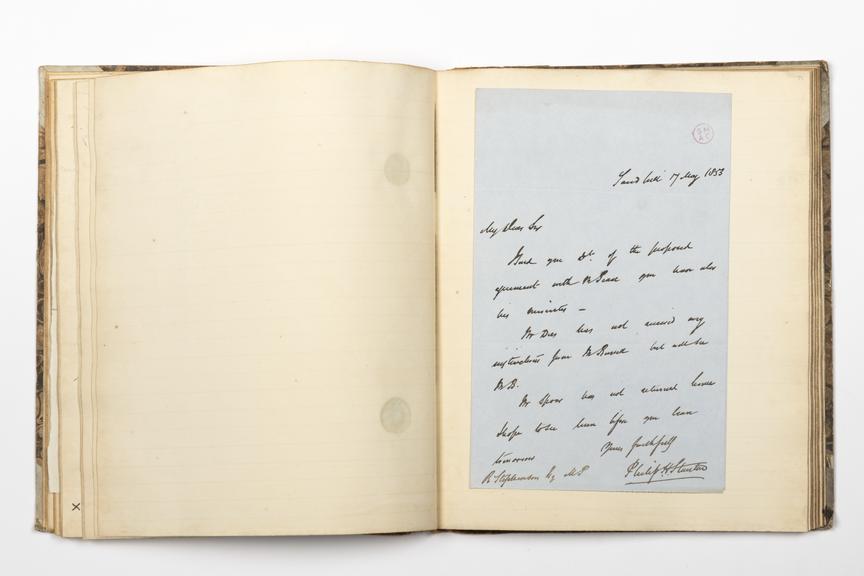 17 May 1853
My Dear Sir
I send you Dft of the proposed
agreement with Mr Pease you have also
his minutes –
Mr Dees has not received any
instructions from Mr but will see
Mr B.
Mr Spoor has not returned home
I hope to see him before you leave
tomorrow
Yours faithfully
Philip H Stanton
R Stephenson Esq MP
X